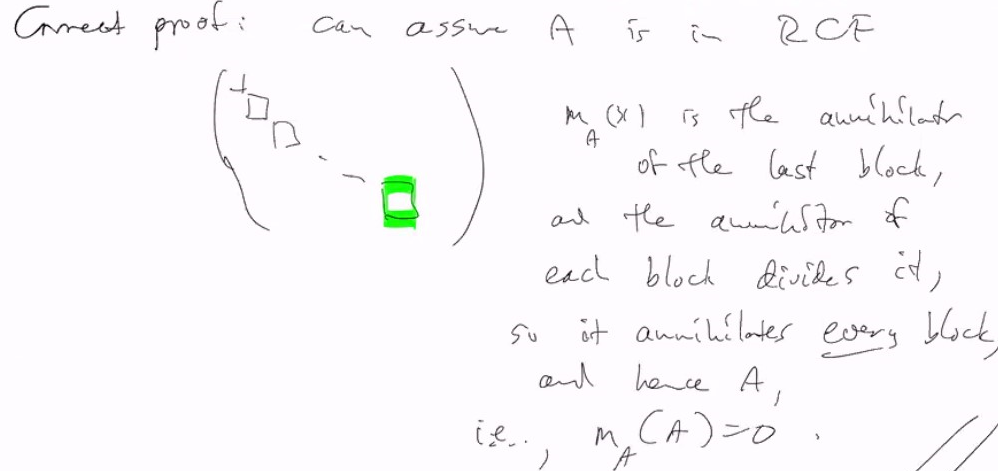 Correct proof: can assume A is in RCF
m_A(x) is the annihilator
of the last block,
and the annihilator of
each block divides it,
so it annihilates every block,
and hence A,
i.e., m_A(A)=0.